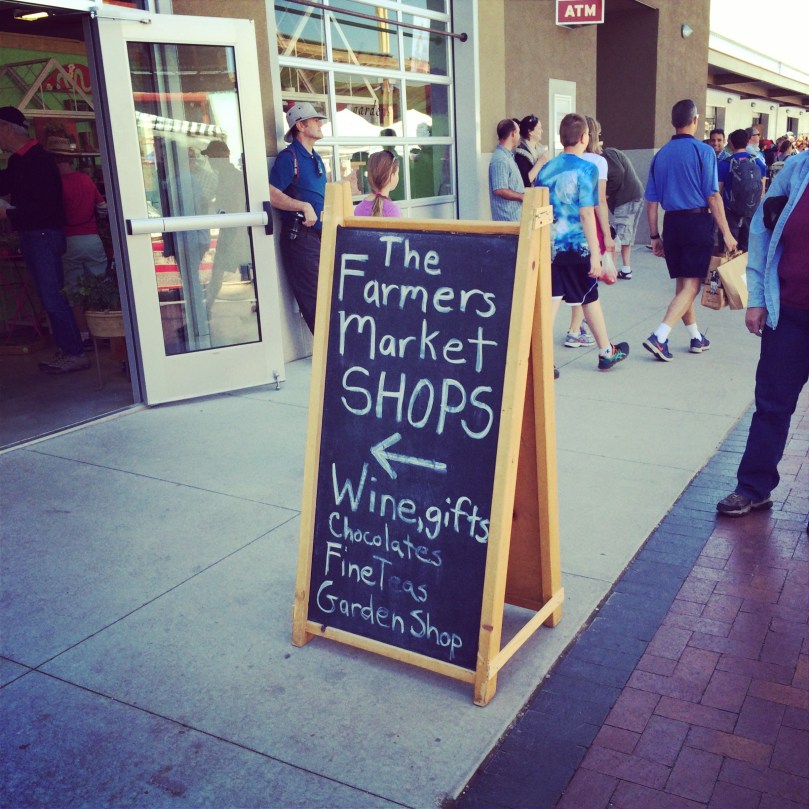 ATM
The
Farmers
Market
SHOPS
←
Wine, gifts
Chocolates
Fine Teas
Garden Shop